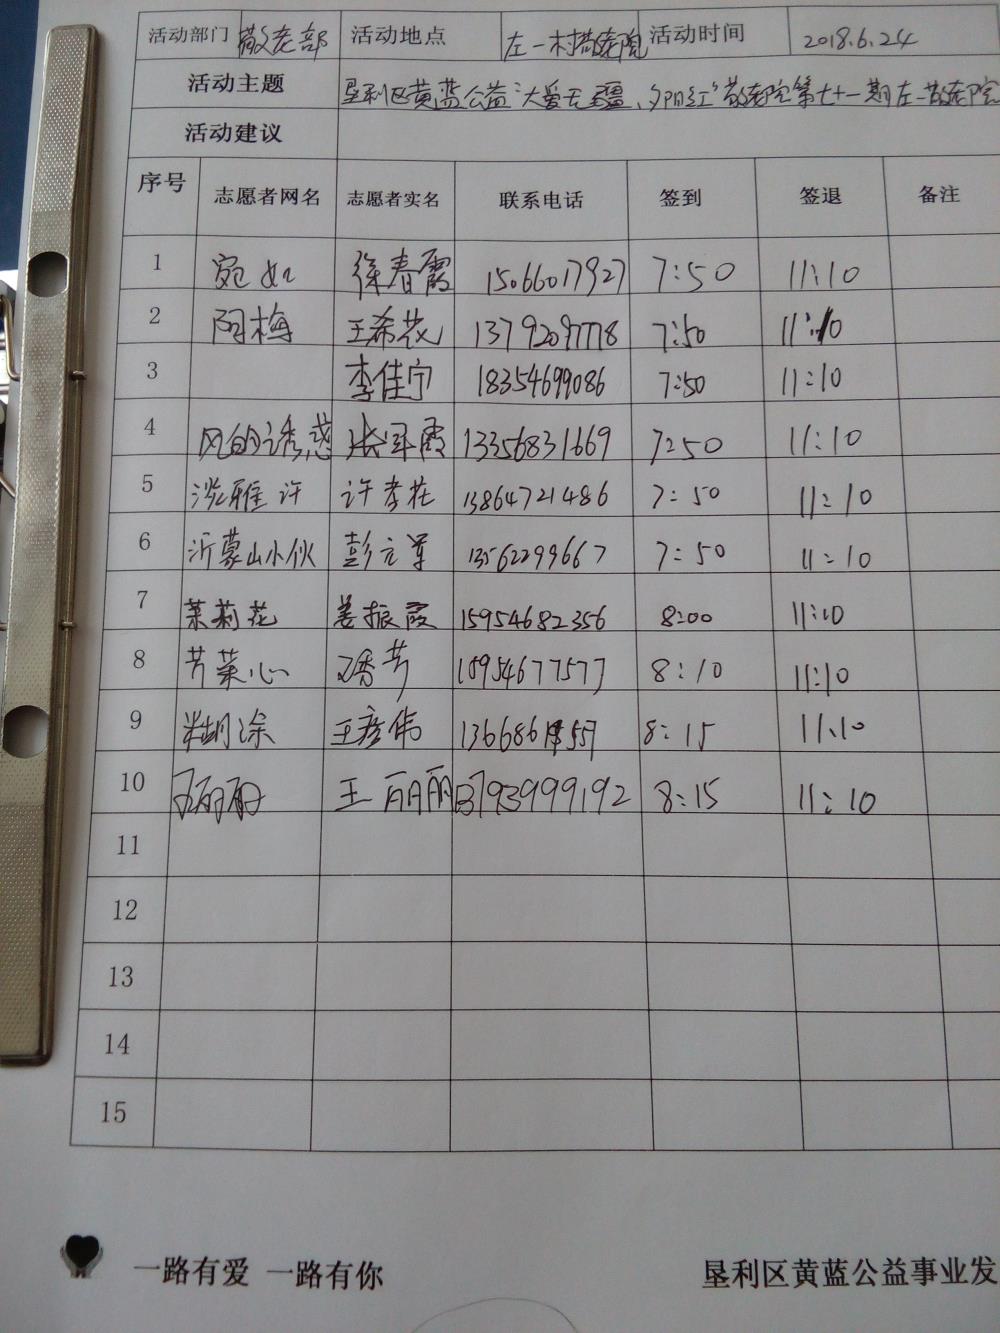 活动部门 敬老部 活动地点 左一村敬老院 活动时间 2018.6.24
活动主题 垦利区黄蓝公益"大爱无疆、夕阳红"敬老院第七十一期左一敬老院
活动建议
序号 志愿者网名 志愿者实名 联系电话 签到 签退 备注
1 宛如 徐春霞 15066017927 7:50 11:10
2 阿梅 王希花 13792097778 7:50 11:10
3 李佳宁 18354699086 7:50 11:10
4 风的诱惑 张军霞 13356831669 7:50 11:10
5 淡雅许 许孝花 13864721486 7:50 11:10
6 沂蒙山小伙 彭立军 13562299667 7:50 11:10
7 茉莉花 姜振霞 15954682356 8:00 11:10
8 芳菜心 15954677577 8:10 11:10
9 糊涂 王彦伟 8:15 11.10
10 王丽丽 13793999192 8:15 11:10
11
12
13
14
15
一路有爱 一路有你 垦利区黄蓝公益事业发